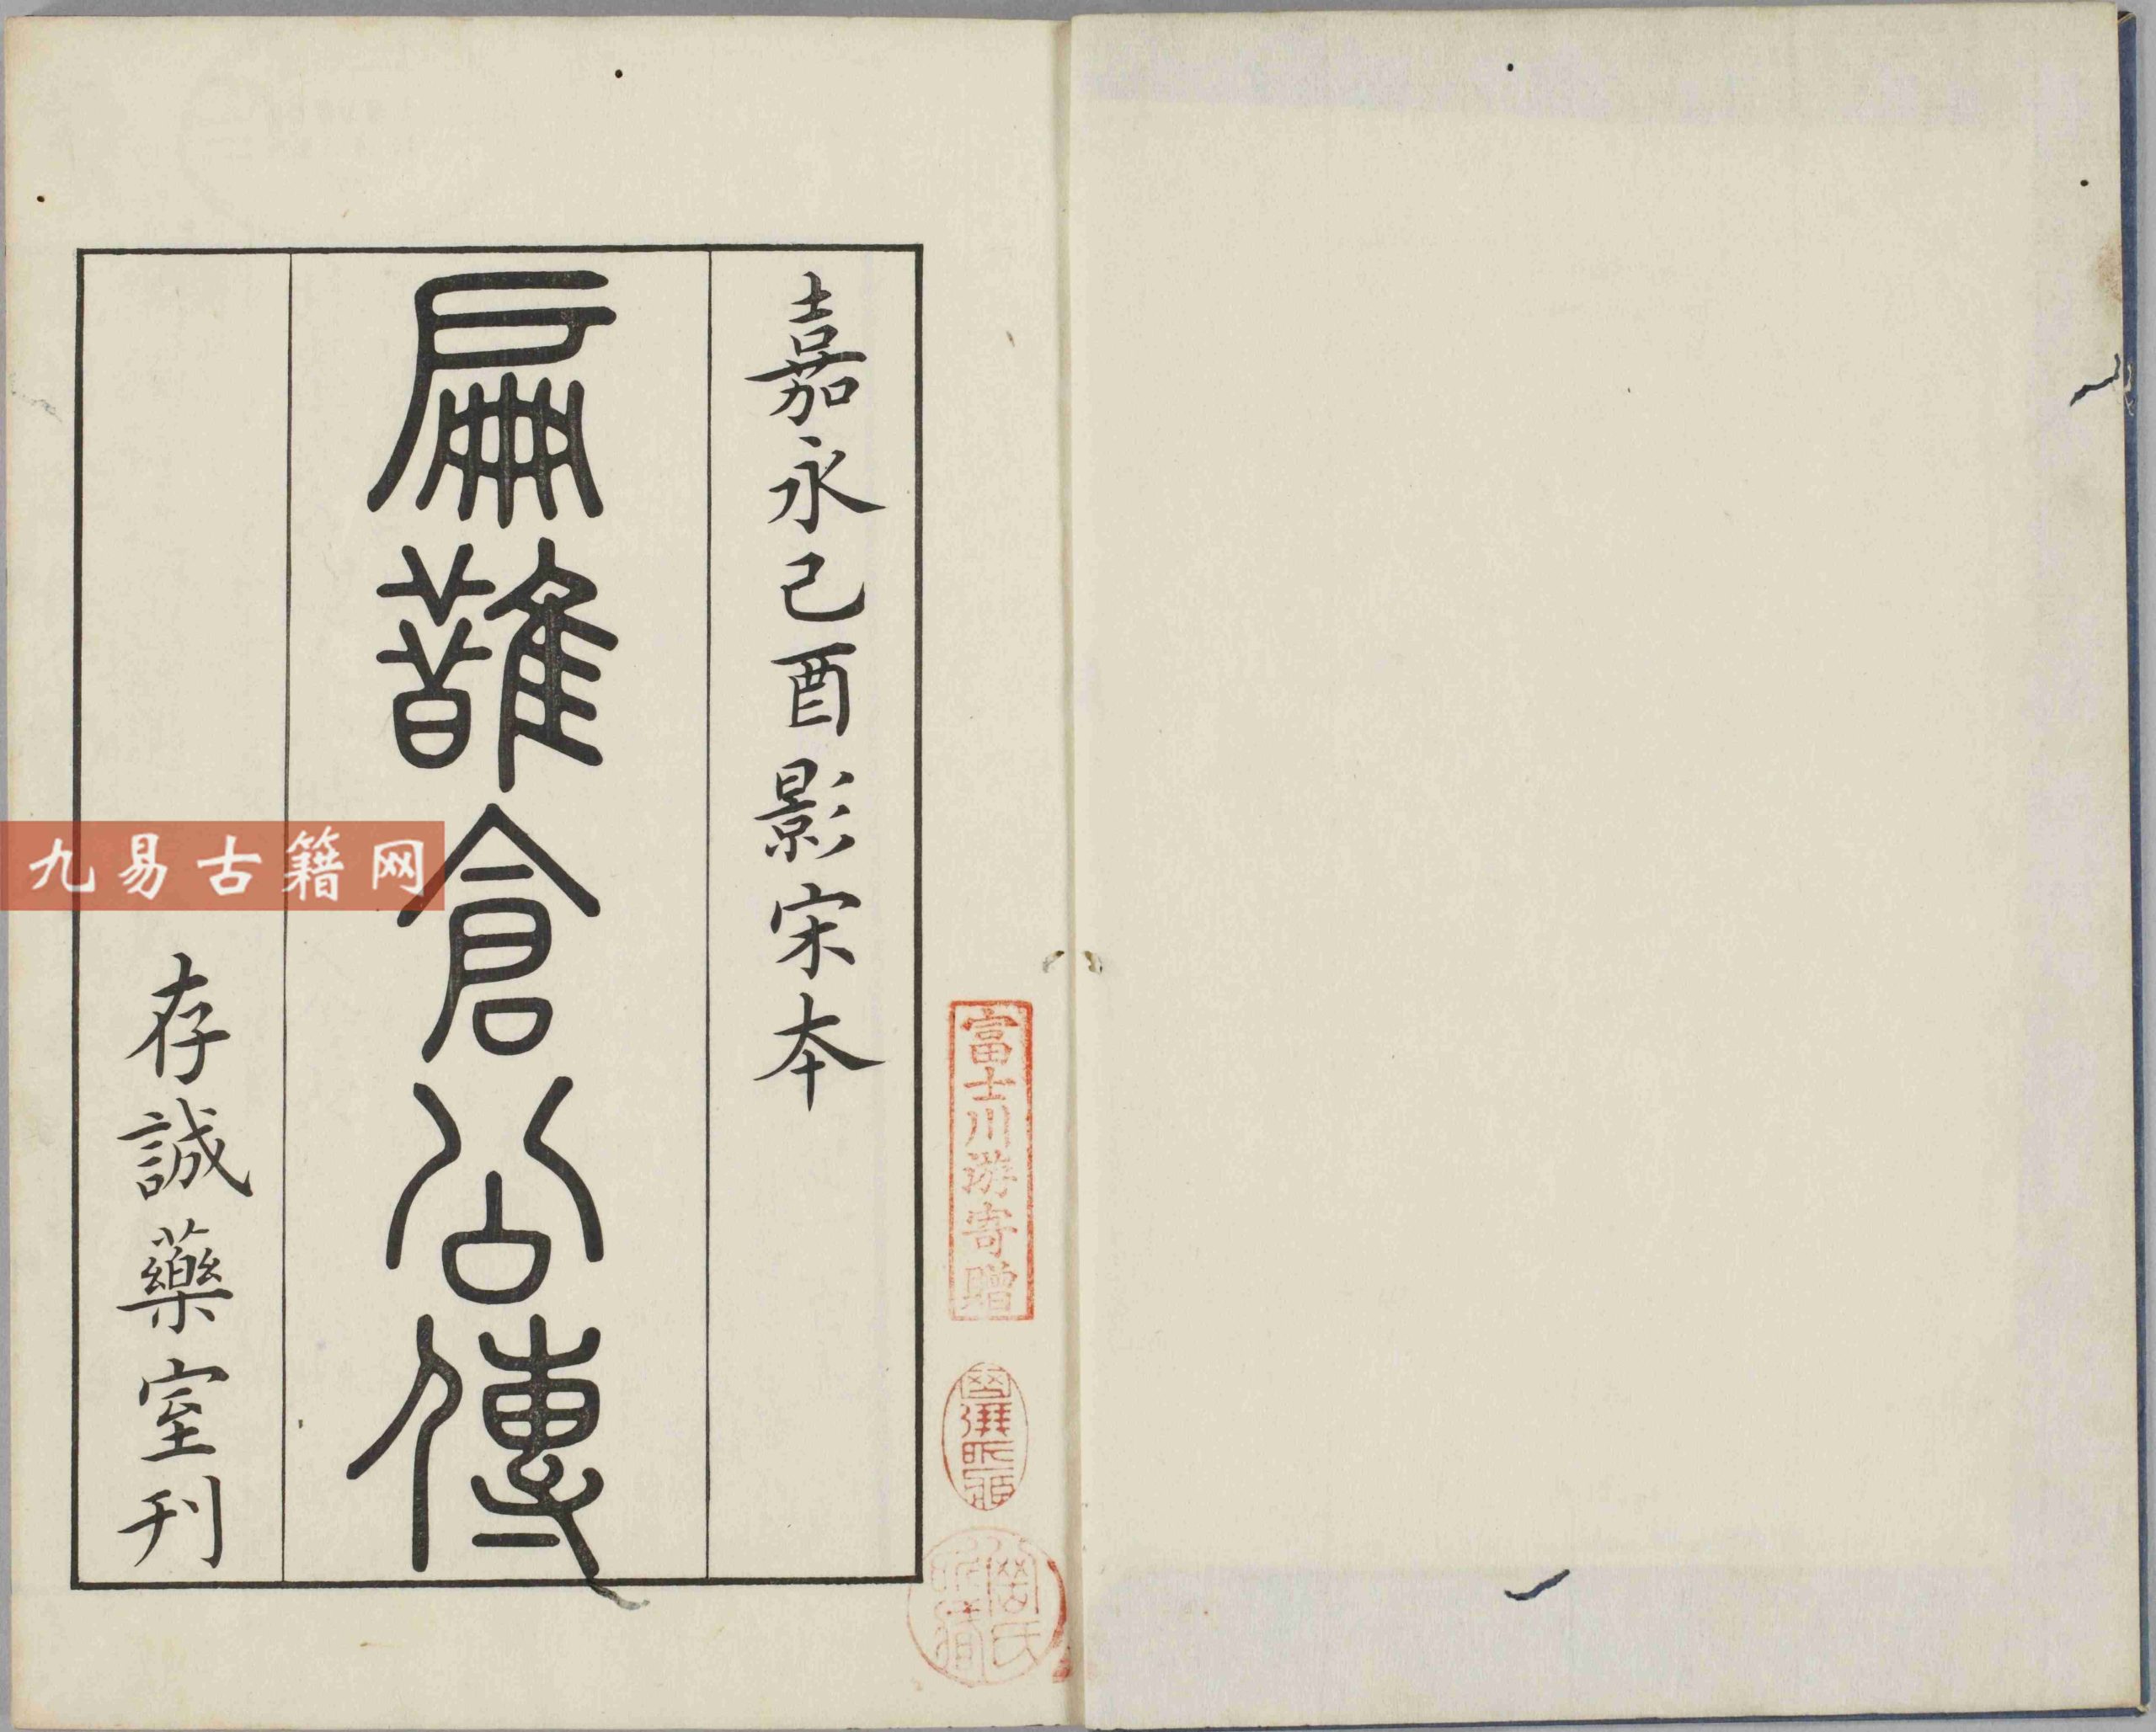 嘉永己酉影宋本
扁鵲倉公傳
存誠藥室刊
富士川游寄贈
九易古籍网